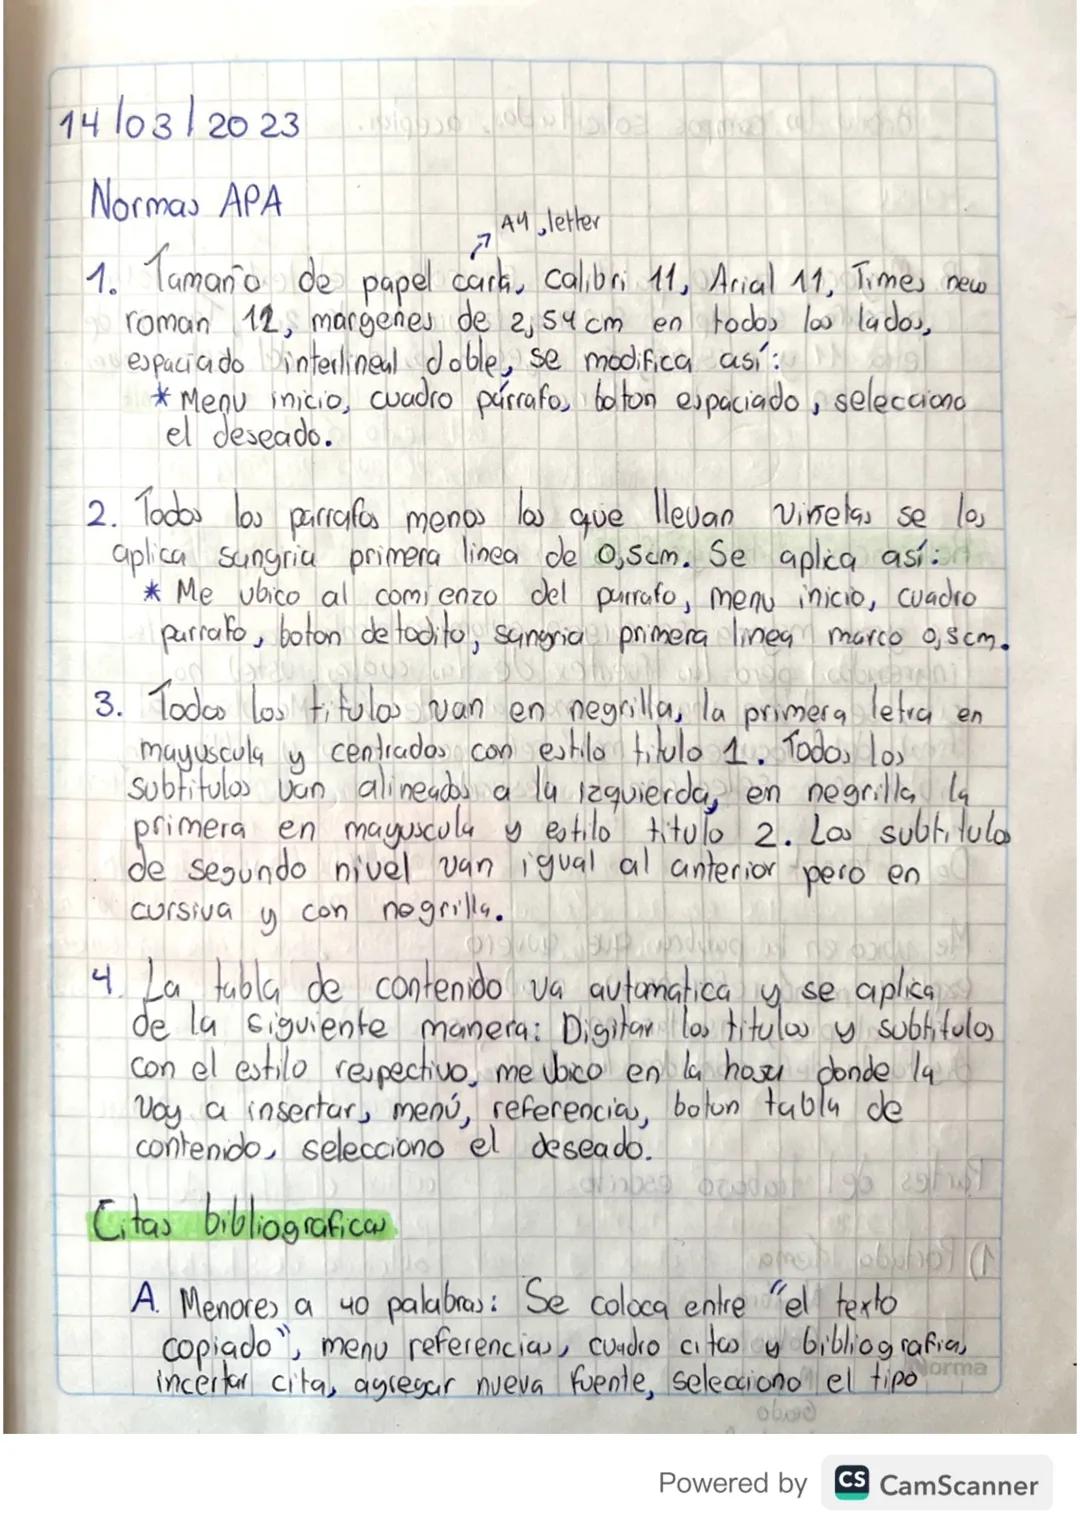 14/03/2023
Normas APA
A4, letter
1. Tamaño de papel carta, calibri 11, Arial 11, Times new
roman 12, margenes de 2,54 cm en todos los lados,
espaciado interlineal doble, se modifica así:
* Menu inicio, cuadro párrafo, boton espaciado, selecciono
el deseado.
2. Todos los parrafos menos los que llevan viñetas se les
aplica sangria primera linea de 0,5cm. Se aplica así:
* Me ubico al comienzo del parrafo, menu inicio, cuadro
parrafo, boton detodito, sangria primera linea marco 0,5cm.
3. Todos los titulos van en negrilla, la primera letra en
mayuscula y centrados con estilo titulo 1. Todos los
subtitulos van alineados a la izquierda, en negrilla la
primera en mayuscula y estilo titulo 2. Los subtitulos
de segundo nivel van igual al anterior pero en
cursiva y con negrilla.
4. La tabla de contenido va automatica y se aplica
de la siguiente manera: Digitar los titulos y subtitulos
con el estilo respectivo, me ubico en la hoja donde la
voy a insertar, menú, referencias, boton tabla de
contenido, selecciono el deseado.
Citas bibliograficas
A. Menores a 40 palabras: Se coloca entre "el texto
copiado", menu referencias, cuadro citas y bibliografia,
incertar cita, agregar nueva fuente, selecciono el tipo
Norma
Powered by CS CamScanner